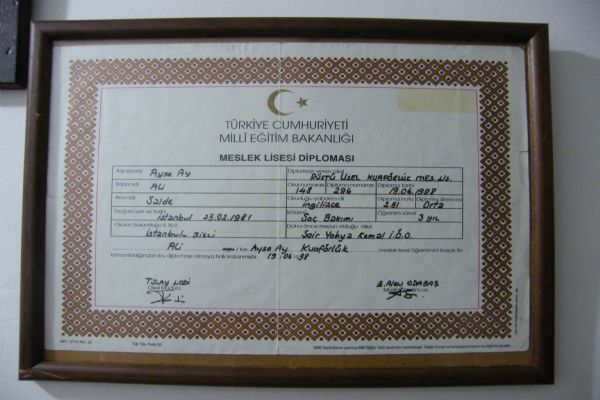 TÜRKİYE CUMHURİYETİ
MİLLÎ EĞİTİM BAKANLIĞI
MESLEK LİSESİ DİPLOMASI
Adı soyadı Ayşe Ay Diplomayı veren okul RÜŞTÜ UZEL KUAFÖRLÜK MES. LİS.
Baba adı ALİ Okul numarası 148 Diploma numarası 296 Diploma tarihi 19.06.1998
Ana adı Saide Okuduğu yabancı dil İngilizce Diploma notu 2.81 Diploma derecesi Orta
Doğum yeri ve tarihi İstanbul 25.02.1981 Bölümü Saç Bakımı Öğrenim süresi 3 yıl
Okulun bulunduğu il, ilçe İstanbul Şişli Daha önce mezun olduğu okul Şair Yahya Kemal İ.Ö.O.
ALİ kızı Ayşe Ay Kuaförlük meslek lisesi öğrenimini başarı ile
tamamladığından bu diplomayı almaya hak kazanmıştır. 19.06.1998
TÜLAY
Okul Müdürü
ODABAŞ